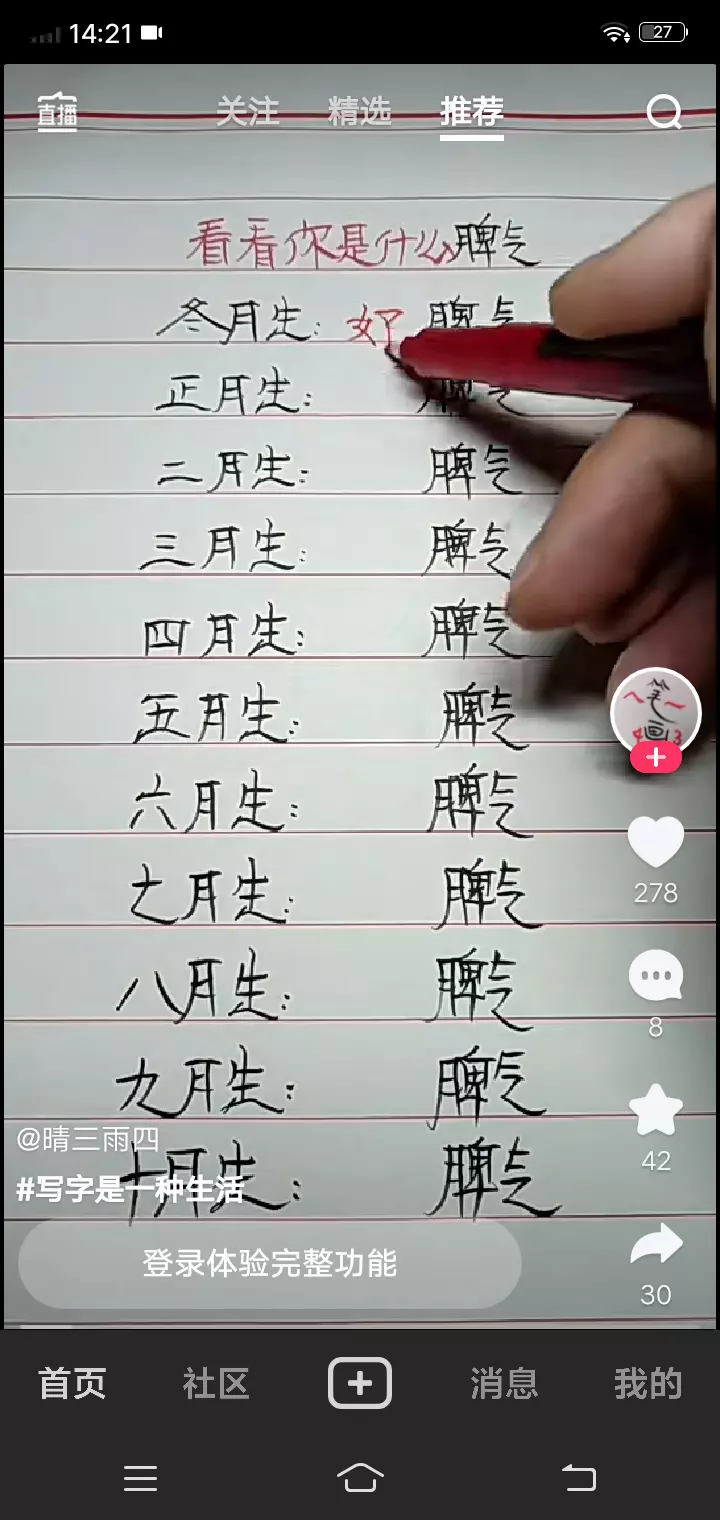 14:21
27
直播 关注 精选 推荐
看看你是什么脾气
冬月生：好 脾气
正月生： 脾气
二月生： 脾气
三月生： 脾气
四月生： 脾气
五月生： 脾气
六月生： 脾气
七月生： 脾气
八月生： 脾气
九月生： 脾气
十月生： 脾气
笔画
278
8
42
30
@晴三雨四
#写字是一种生活
登录体验完整功能
首页 社区 消息 我的